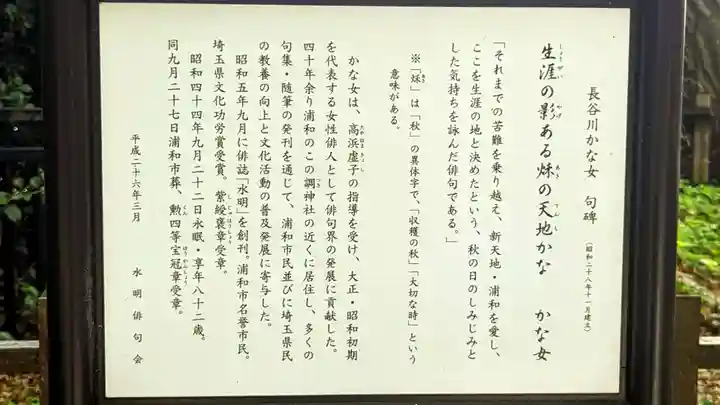 長谷川かな女 句碑 (昭和二十八年十一月建立)
生涯の影ある秌の天地かな かな女
「それまでの苦難を乗り越え、新天地・浦和を愛し、
ここを生涯の地と決めたという、秋の日のしみじみと
した気持ちを詠んだ俳句である。」
※「秌」は「秋」の異体字で、「収穫の秋」「大切な時」という
意味がある。
かな女は、高浜虚子の指導を受け、大正・昭和初期
を代表する女性俳人として俳句界の発展に貢献した。
四十年余り浦和のこの調神社の近くに居住し、多くの
句集・随筆の発刊を通じて、浦和市民並びに埼玉県民
の教養の向上と文化活動の普及発展に寄与した。
昭和五年九月に俳誌「水明」を創刊。浦和市名誉市民。
埼玉県文化功労賞受賞。紫綬褒章受章。
昭和四十四年九月二十二日永眠・享年八十二歳。
同九月二十七日浦和市葬、勲四等宝冠章受章。
平成二十六年三月 水明俳句会